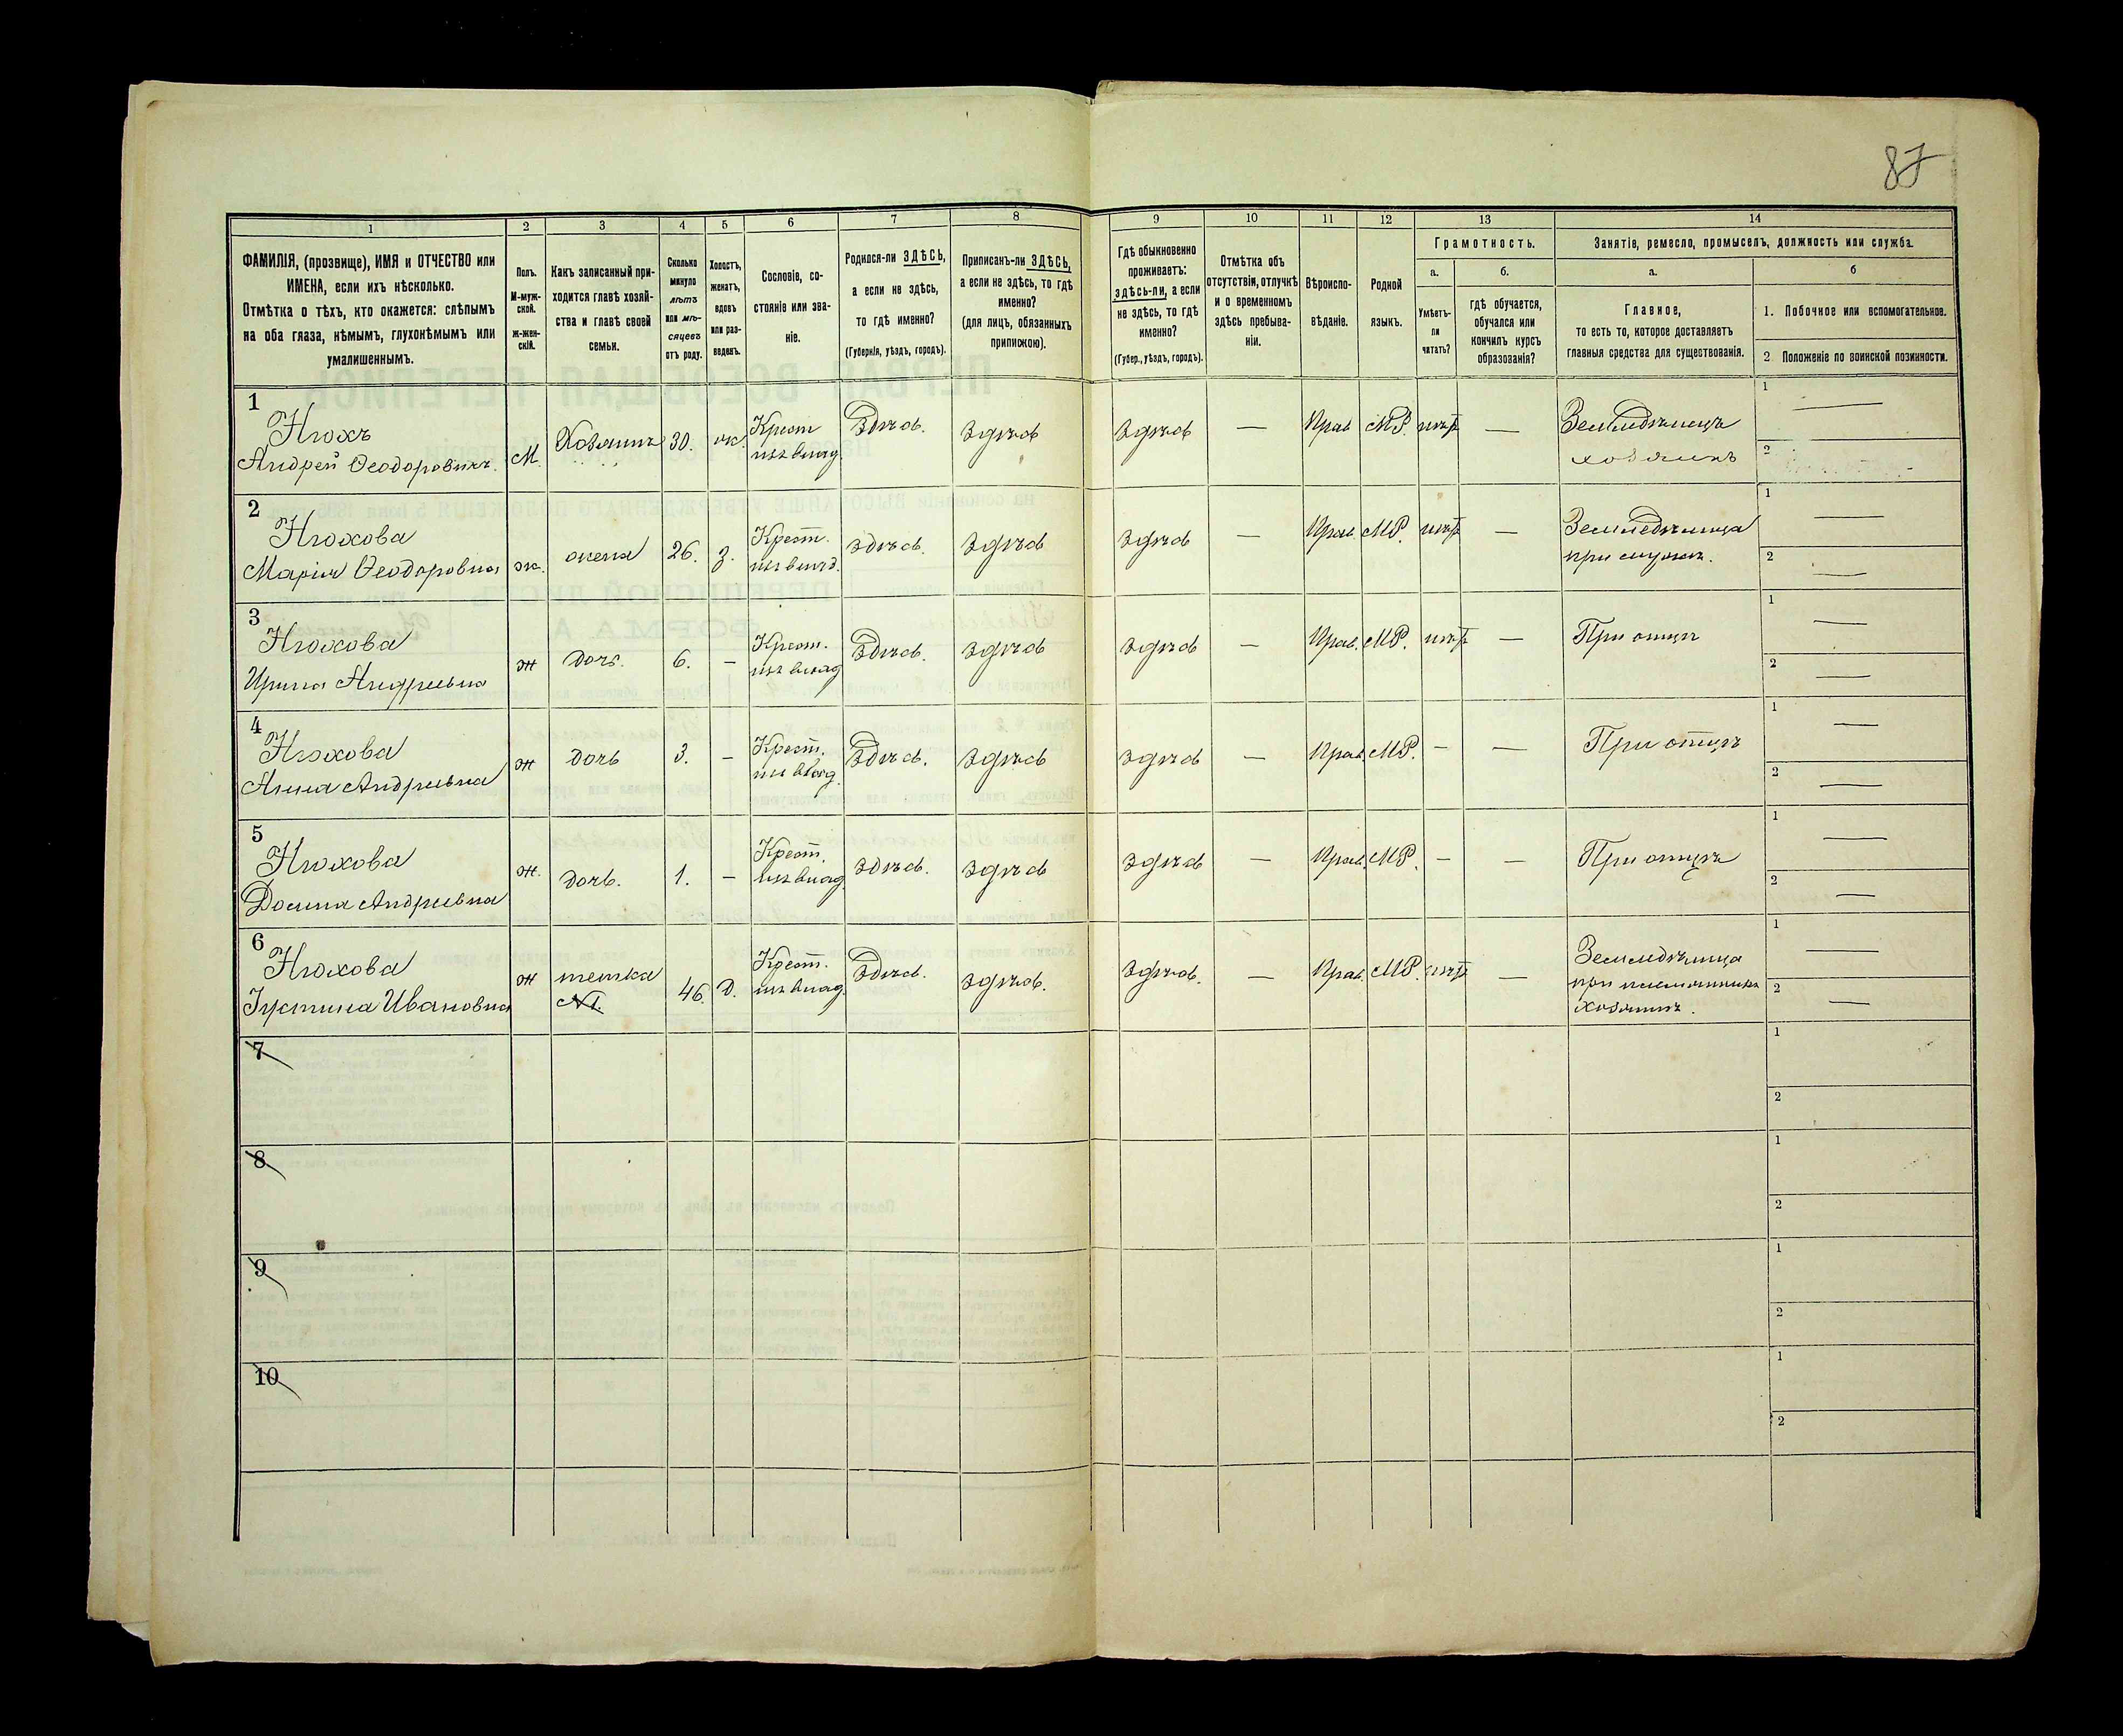 87
1 2 3 4 5 6 7 8 9 10 11 12 13 14
ФАМИЛІЯ, (прозвище), ИМЯ и ОТЧЕСТВО или
ИМЕНА, если ихъ нѣсколько.
Отмѣтка о тѣхъ, кто окажется: слѣпымъ
на оба глаза, нѣмымъ, глухонѣмымъ или
умалишеннымъ.
Полъ.
М-муж-
ской.
ж-жен-
скій.
Какъ записанный при-
ходится главѣ хозяй-
ства и главѣ своей
семьи.
Сколько
минуло
лѣтъ
или мѣ-
сяцевъ
отъ роду.
Холостъ,
женатъ,
вдовъ
или раз-
веденъ.
Сословіе, со-
стояніе или зва-
ніе.
Родился-ли ЗДѢСЬ,
а если не здѣсь,
то гдѣ именно?
(Губернія, уѣздъ, городъ).
Приписанъ-ли ЗДѢСЬ,
а если не здѣсь, то гдѣ
именно?
(для лицъ, обязанныхъ
припискою).
Гдѣ обыкновенно
проживаетъ:
здѣсь-ли, а если
не здѣсь, то гдѣ
именно?
(Губер., уѣздъ, городъ).
Отмѣтка объ
отсутствіи, отлучкѣ
и о временномъ
здѣсь пребыва-
ніи.
Вѣроиспо-
вѣданіе.
Родной
языкъ.
Грамотность.
а.
Умѣетъ-
ли
читать?
б.
гдѣ обучается,
обучался или
кончилъ курсъ
образованія?
Занятіе, ремесло, промыселъ, должность или служба.
а.
Главное,
то есть то, которое доставляетъ
главныя средства для существованія.
б
1. Побочное или вспомогательное.
2. Положеніе по воинской повинности.
1
Нюхъ
Андрей Ѳеодоровичъ.
М. Хозяинъ 30. ж.
Крест
изъ влад.
Здѣсь. Здѣсь Здѣсь — Прав МР. нѣтъ —
Земледѣлецъ
хозяинъ
1 —
2
2
Нюхова
Марія Ѳеодоровна
ж. жена 26. з.
Крест.
изъ влад.
здѣсь. Здѣсь Здѣсь — Прав. МР. нѣтъ —
Земледѣлица
при мужѣ.
1 —
2 —
3
Нюхова
Ирина Андреевна
ж дочь. 6. —
Крест.
изъ влад
Здѣсь. Здѣсь Здѣсь — Прав. МР. нѣтъ —
При отцѣ
1 —
2 —
4
Нюхова
Анна Андреевна
ж дочь 3. —
Крест.
изъ влад.
Здѣсь. Здѣсь Здѣсь — Прав. МР. — —
При отцѣ
1 —
2 —
5
Нюхова
Домна Андреевна
ж. дочь. 1. —
Крест.
изъ влад.
здѣсь. Здѣсь Здѣсь — Прав. МР. — —
При отцѣ
1 —
2 —
6
Нюхова
Іустина Ивановна
ж тетка 46. Д.
№1.
Крест.
изъ влад.
Здѣсь. Здѣсь. Здѣсь. — Прав. МР. нѣтъ —
Земледѣлица
при племянникѣ
хозяинѣ.
1 —
2 —
7
1
2
8
1
2
9
1
2
10
1
2